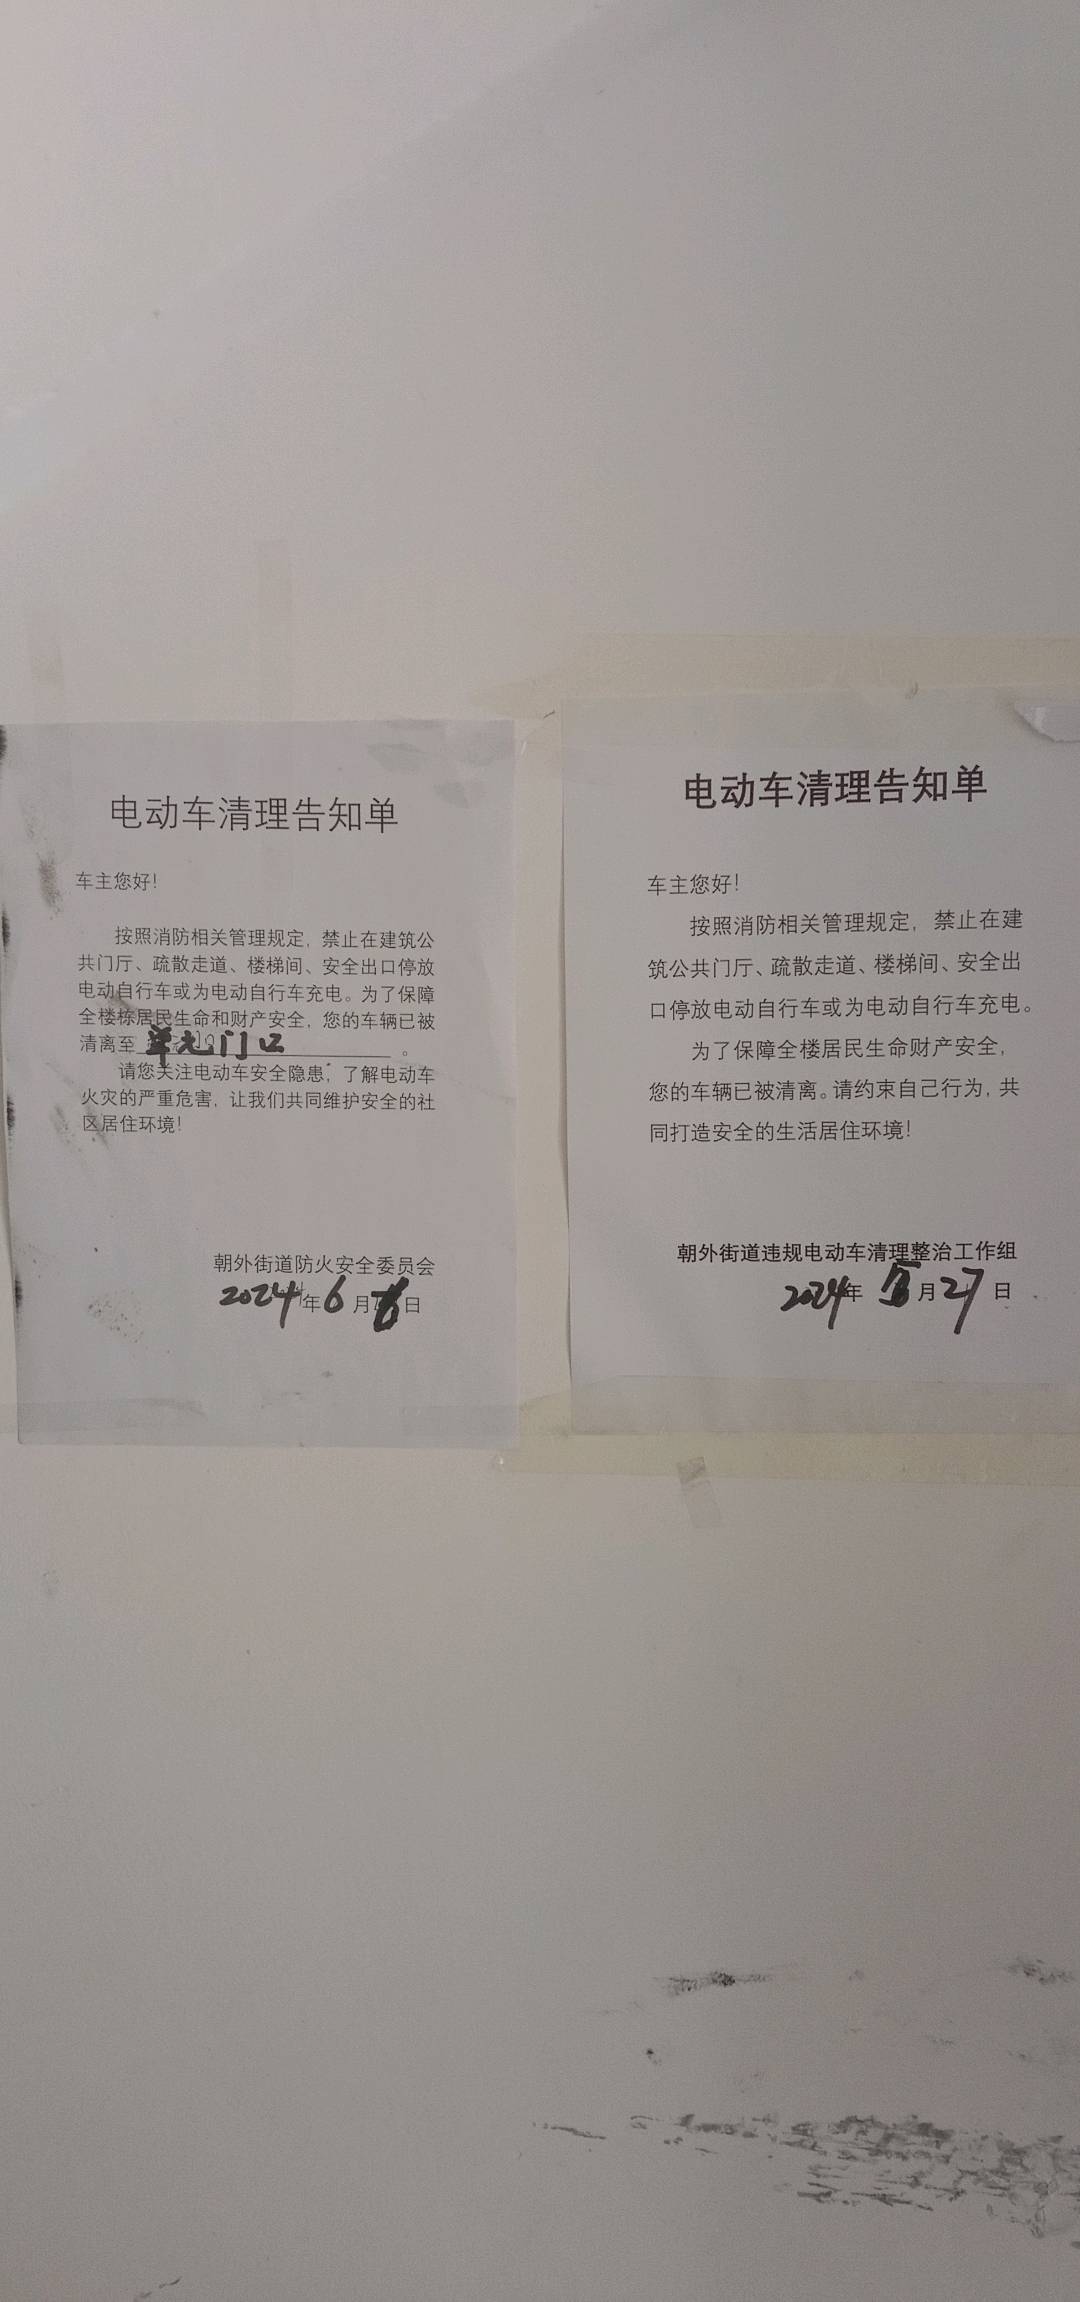 电动车清理告知单
车主您好！
按照消防相关管理规定，禁止在建筑公
共门厅、疏散走道、楼梯间、安全出口停放
电动自行车或为电动自行车充电。为了保障
全楼栋居民生命和财产安全，您的车辆已被
清离至 单元门口 。
请您关注电动车安全隐患，了解电动车
火灾的严重危害，让我们共同维护安全的社
区居住环境！
朝外街道防火安全委员会
2024年6月 日
电动车清理告知单
车主您好！
按照消防相关管理规定，禁止在建
筑公共门厅、疏散走道、楼梯间、安全出
口停放电动自行车或为电动自行车充电。
为了保障全楼居民生命财产安全，
您的车辆已被清离。请约束自己行为，共
同打造安全的生活居住环境！
朝外街道违规电动车清理整治工作组
2024年 月27日